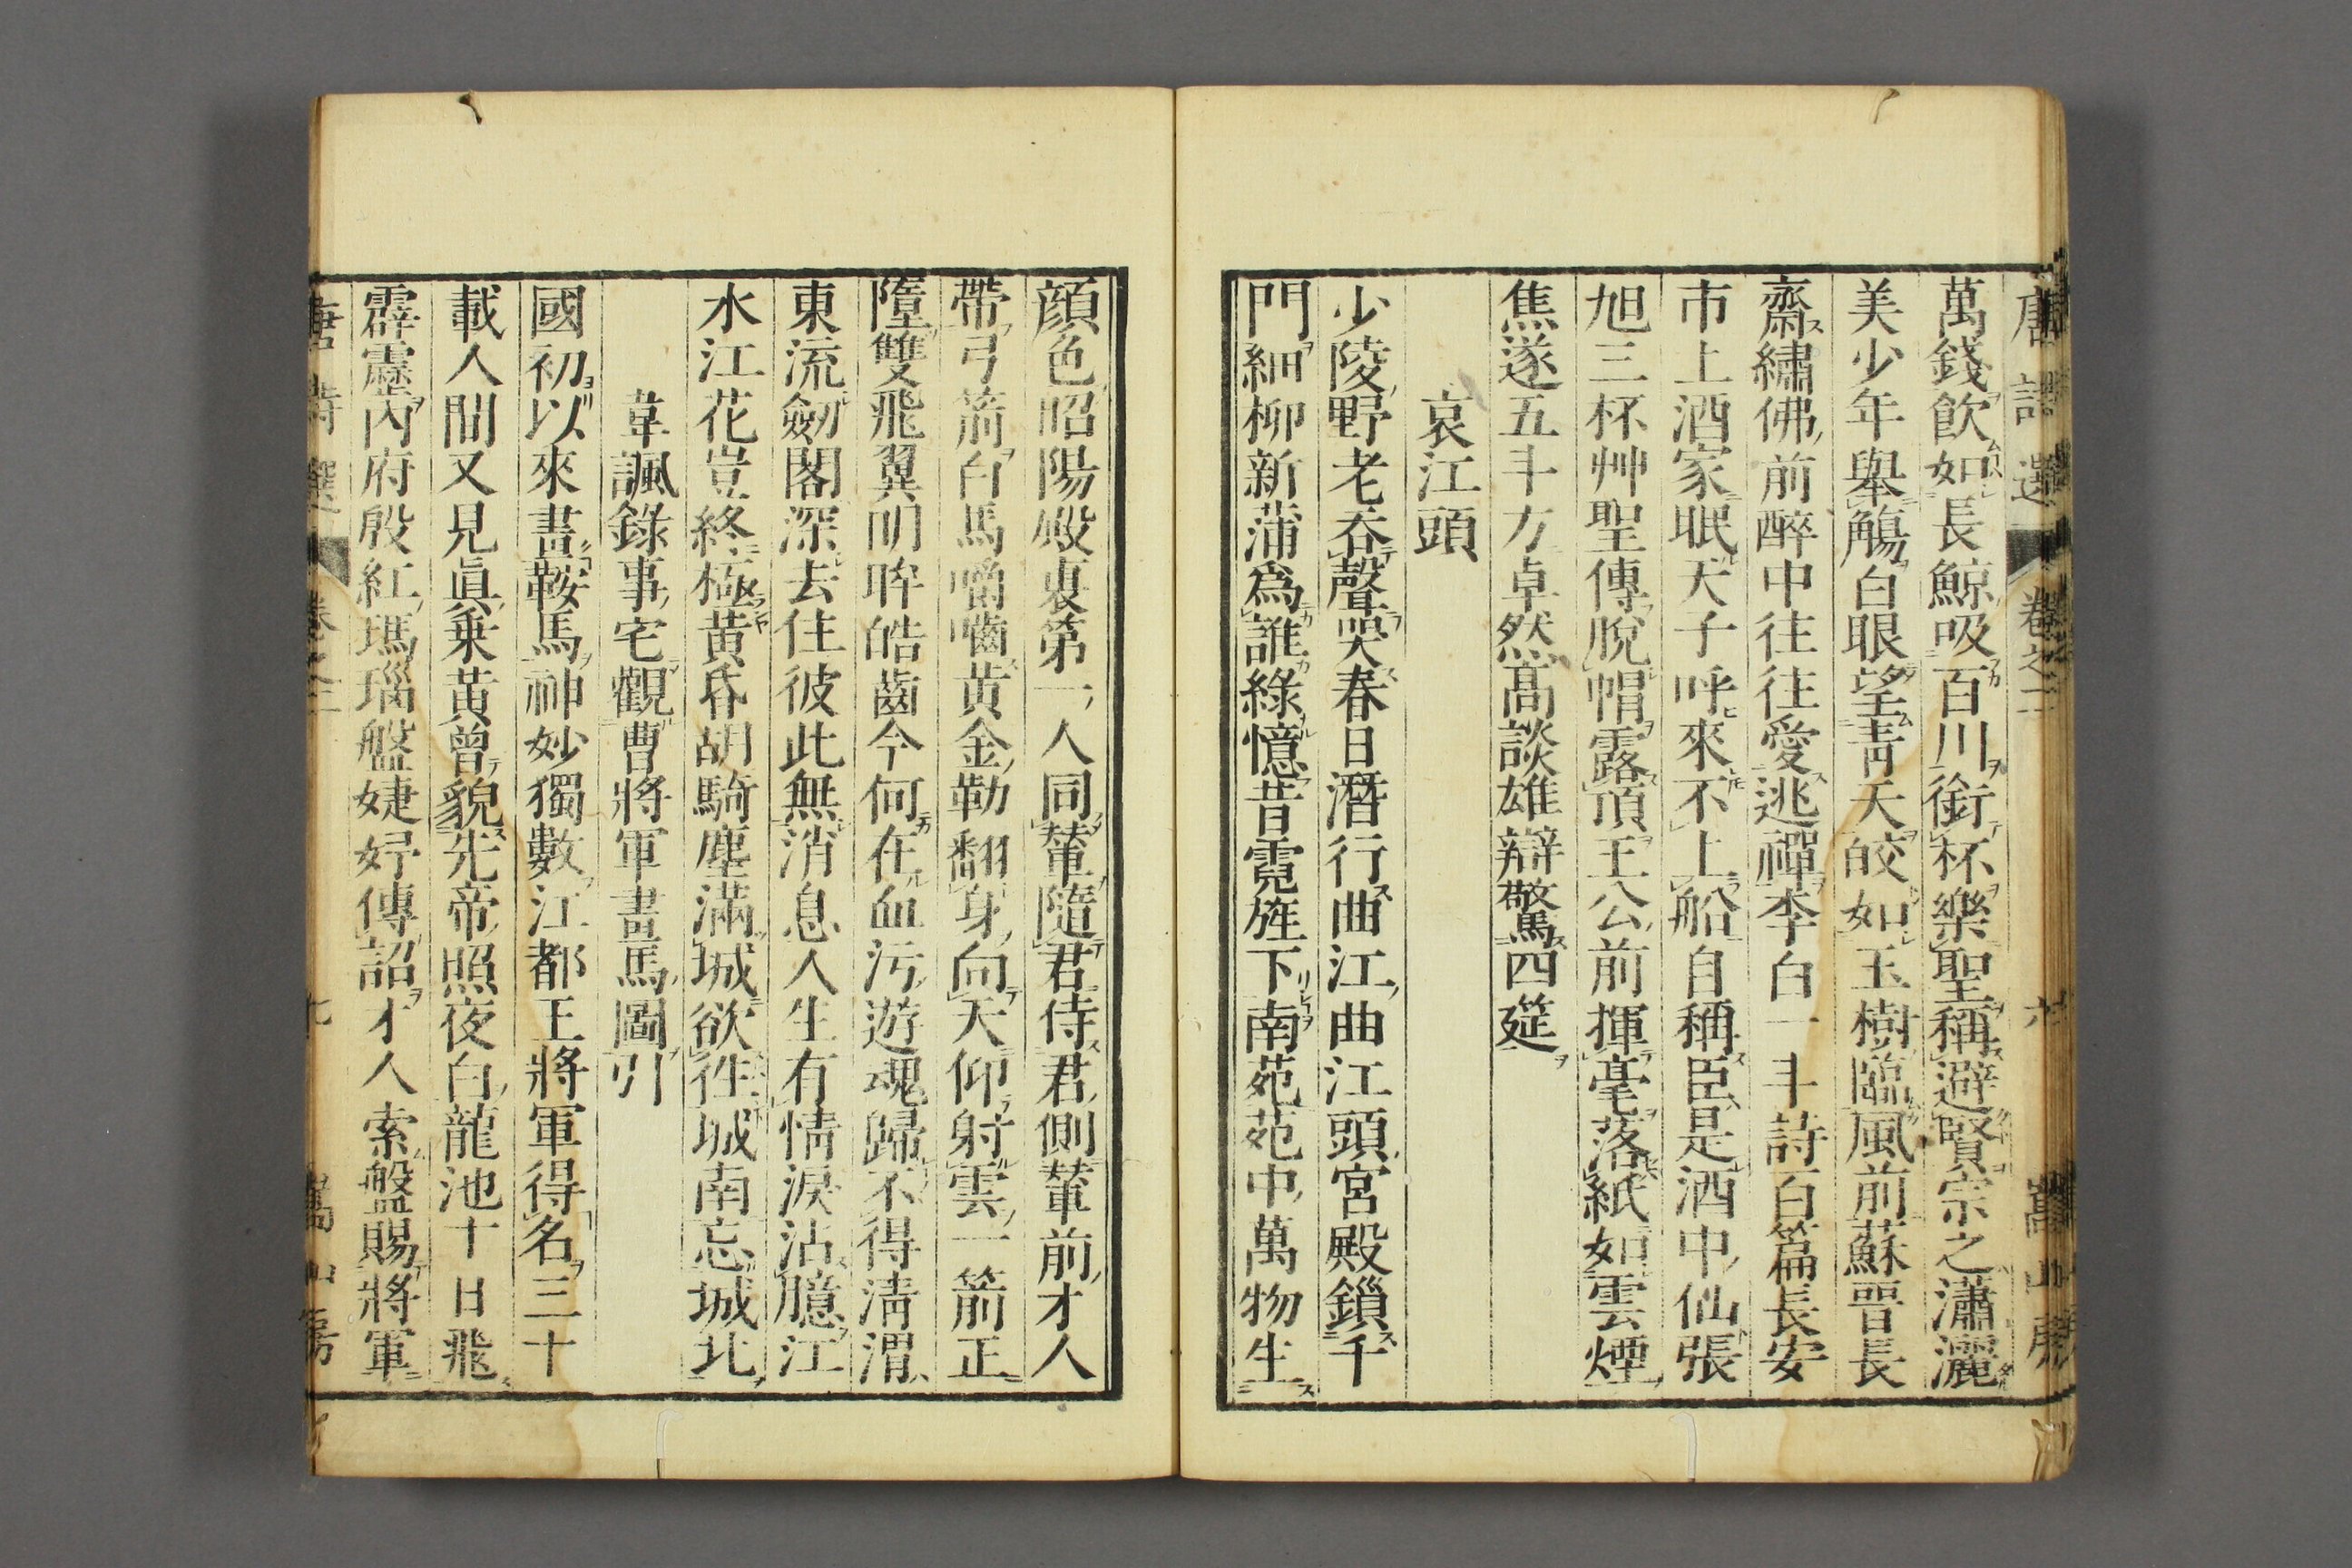 唐詩選 卷之二 六 嵩山房
萬錢飮如長鯨吸百川銜杯樂聖稱避賢宗之瀟灑
美少年舉觴白眼望靑天皎如玉樹臨風前蘇晉長
齋繡佛前醉中往往愛逃禪李白一斗詩百篇長安
市上酒家眠天子呼來不上船自稱臣是酒中仙張
旭三杯艸聖傳脫帽露頂王公前揮毫落紙如雲煙
焦遂五斗方卓然高談雄辯驚四筵
哀江頭
少陵野老吞聲哭春日潛行曲江曲江頭宮殿鎖千
門細柳新蒲爲誰綠憶昔霓旌下南苑苑中萬物生
顏色昭陽殿裏第一人同輦隨君侍君側輦前才人
帶弓箭白馬嚼嚙黃金勒翻身向天仰射雲一箭正
墮雙飛翼明眸皓齒今何在血污遊魂歸不得淸渭
東流劒閣深去住彼此無消息人生有情淚沾臆江
水江花豈終極黃昏胡騎塵滿城欲往城南忘城北
韋諷錄事宅觀曹將軍畫馬圖引
國初以來畫鞍馬神妙獨數江都王將軍得名三十
載人間又見眞乗黃曾貌先帝照夜白龍池十日飛
霹靂內府殷紅瑪瑙盤婕妤傳詔才人索盤賜將軍
唐詩選 卷之二 七 嵩山房